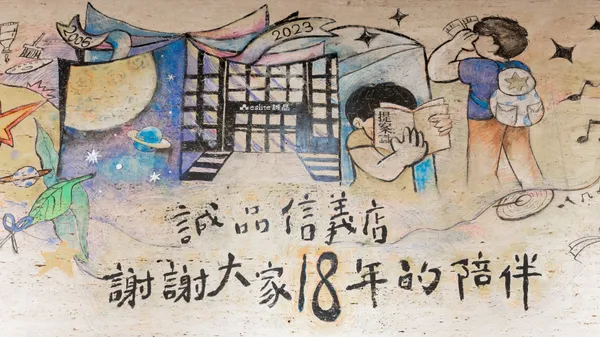 2006
2023
eslite 誠品
提案
誠品信義店
謝謝大家18年的陪伴